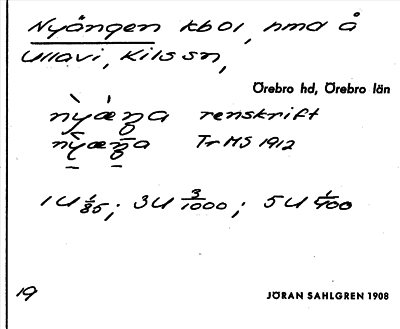 Nyängen kbol, hmd å
Ullavi, Kils sn,
Örebro hd, Örebro län
renskrift
Tr MS 1912
1U 1/85; 3U 3/1000; 5U 1/400
19
JÖRAN SAHLGREN 1908